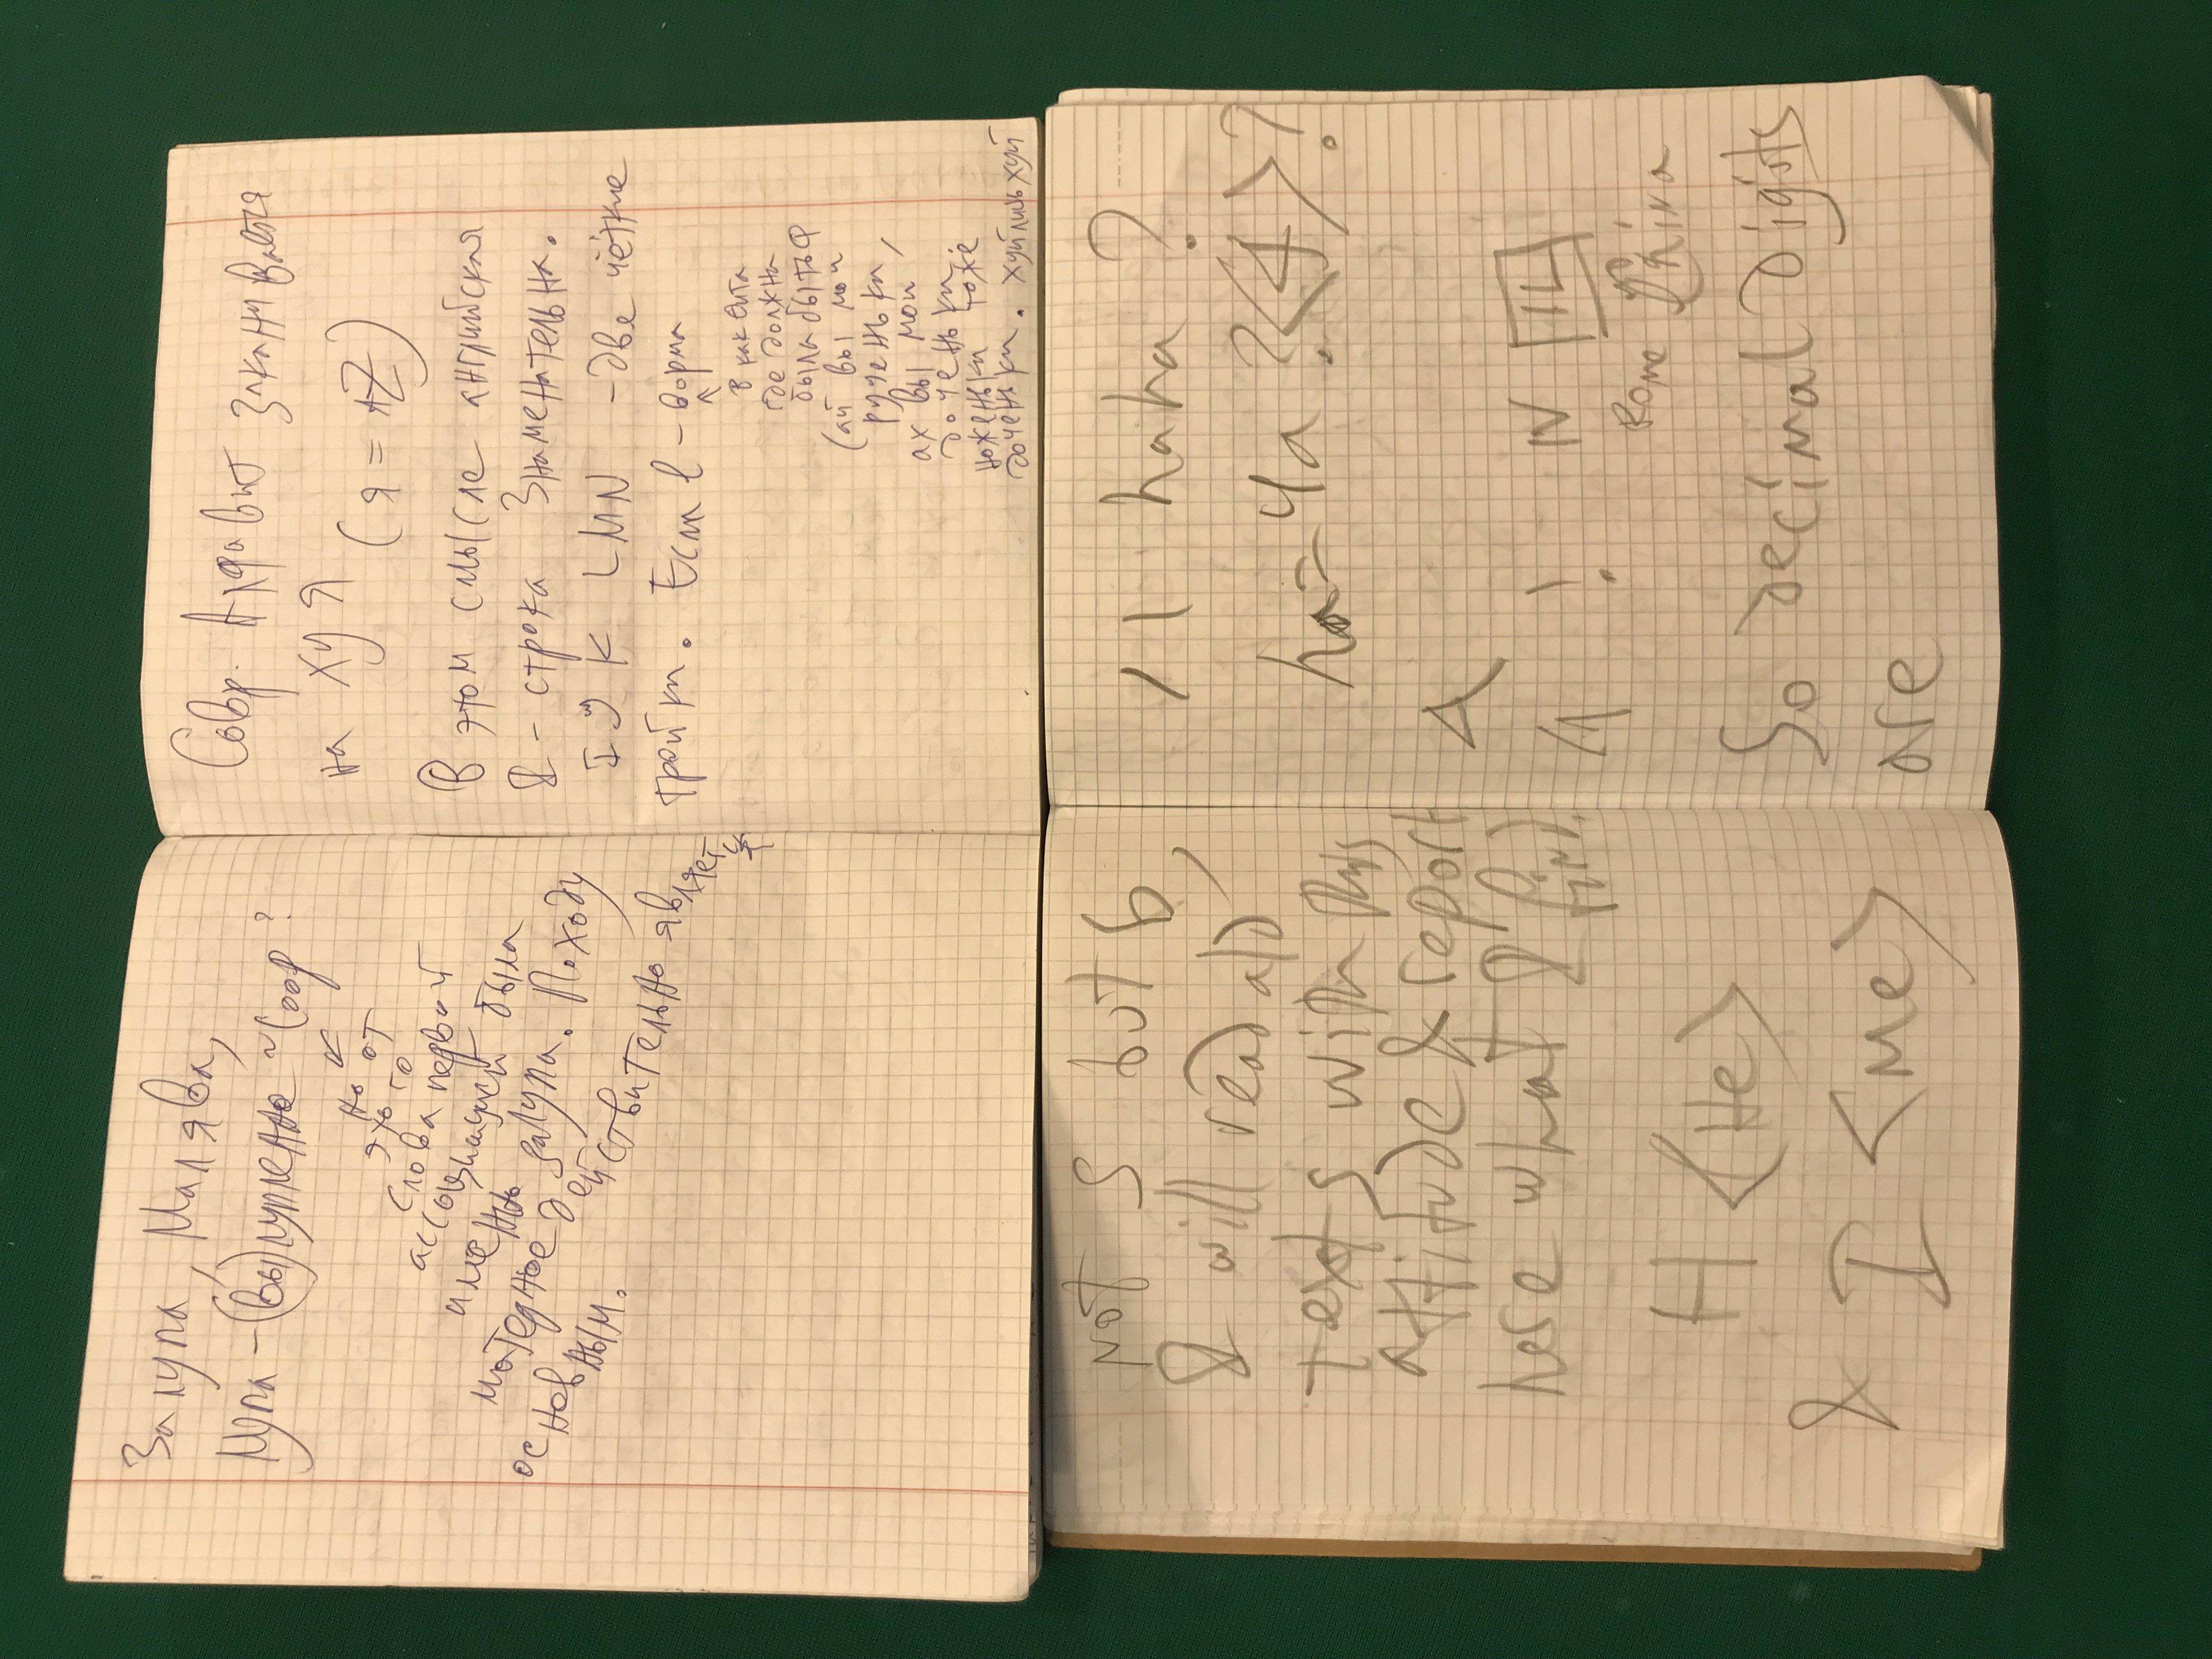 Залупа, Малява,
Мупа - (вы)лупленное ~ Соор ?
но от
это го
слова первой
ассоциацией была
именно залупа. Походу
матерное действительно является
основным.
Совр. Алфавит заканчивается
на ХУЯ
(Я = AZ)
В этом смысле английская
I - строка знаменательна.
I J K LMN - две чёткие
тройки. Если l - ворма
↑
В как Фита
где должна
была быть Ф
(ай вы мои
рученьки,
ах вы мои
доченьки.
ноженьки тоже
доченьки. хуйлишьхуй
not S but b,
& will read old
texts with this
attitude & report
here what & find.
H <He>
& I <Me>
11 haha ?
ha = 4a ? <4> ?
4
4 ! IV
Rome China
So decimal digits
are